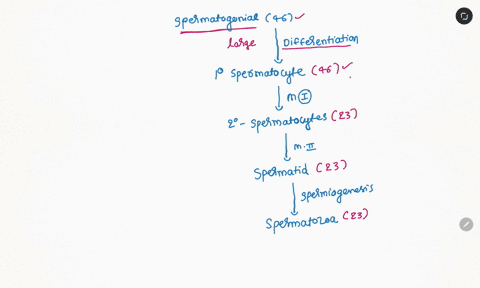 Spermatogonial (46) ✓
large Differentiation
1° Spermatocyte (46) ✓
M I
2° - Spermatocytes (23)
M. II
Spermatid (23)
Spermiogenesis
Spermatozoa (23)